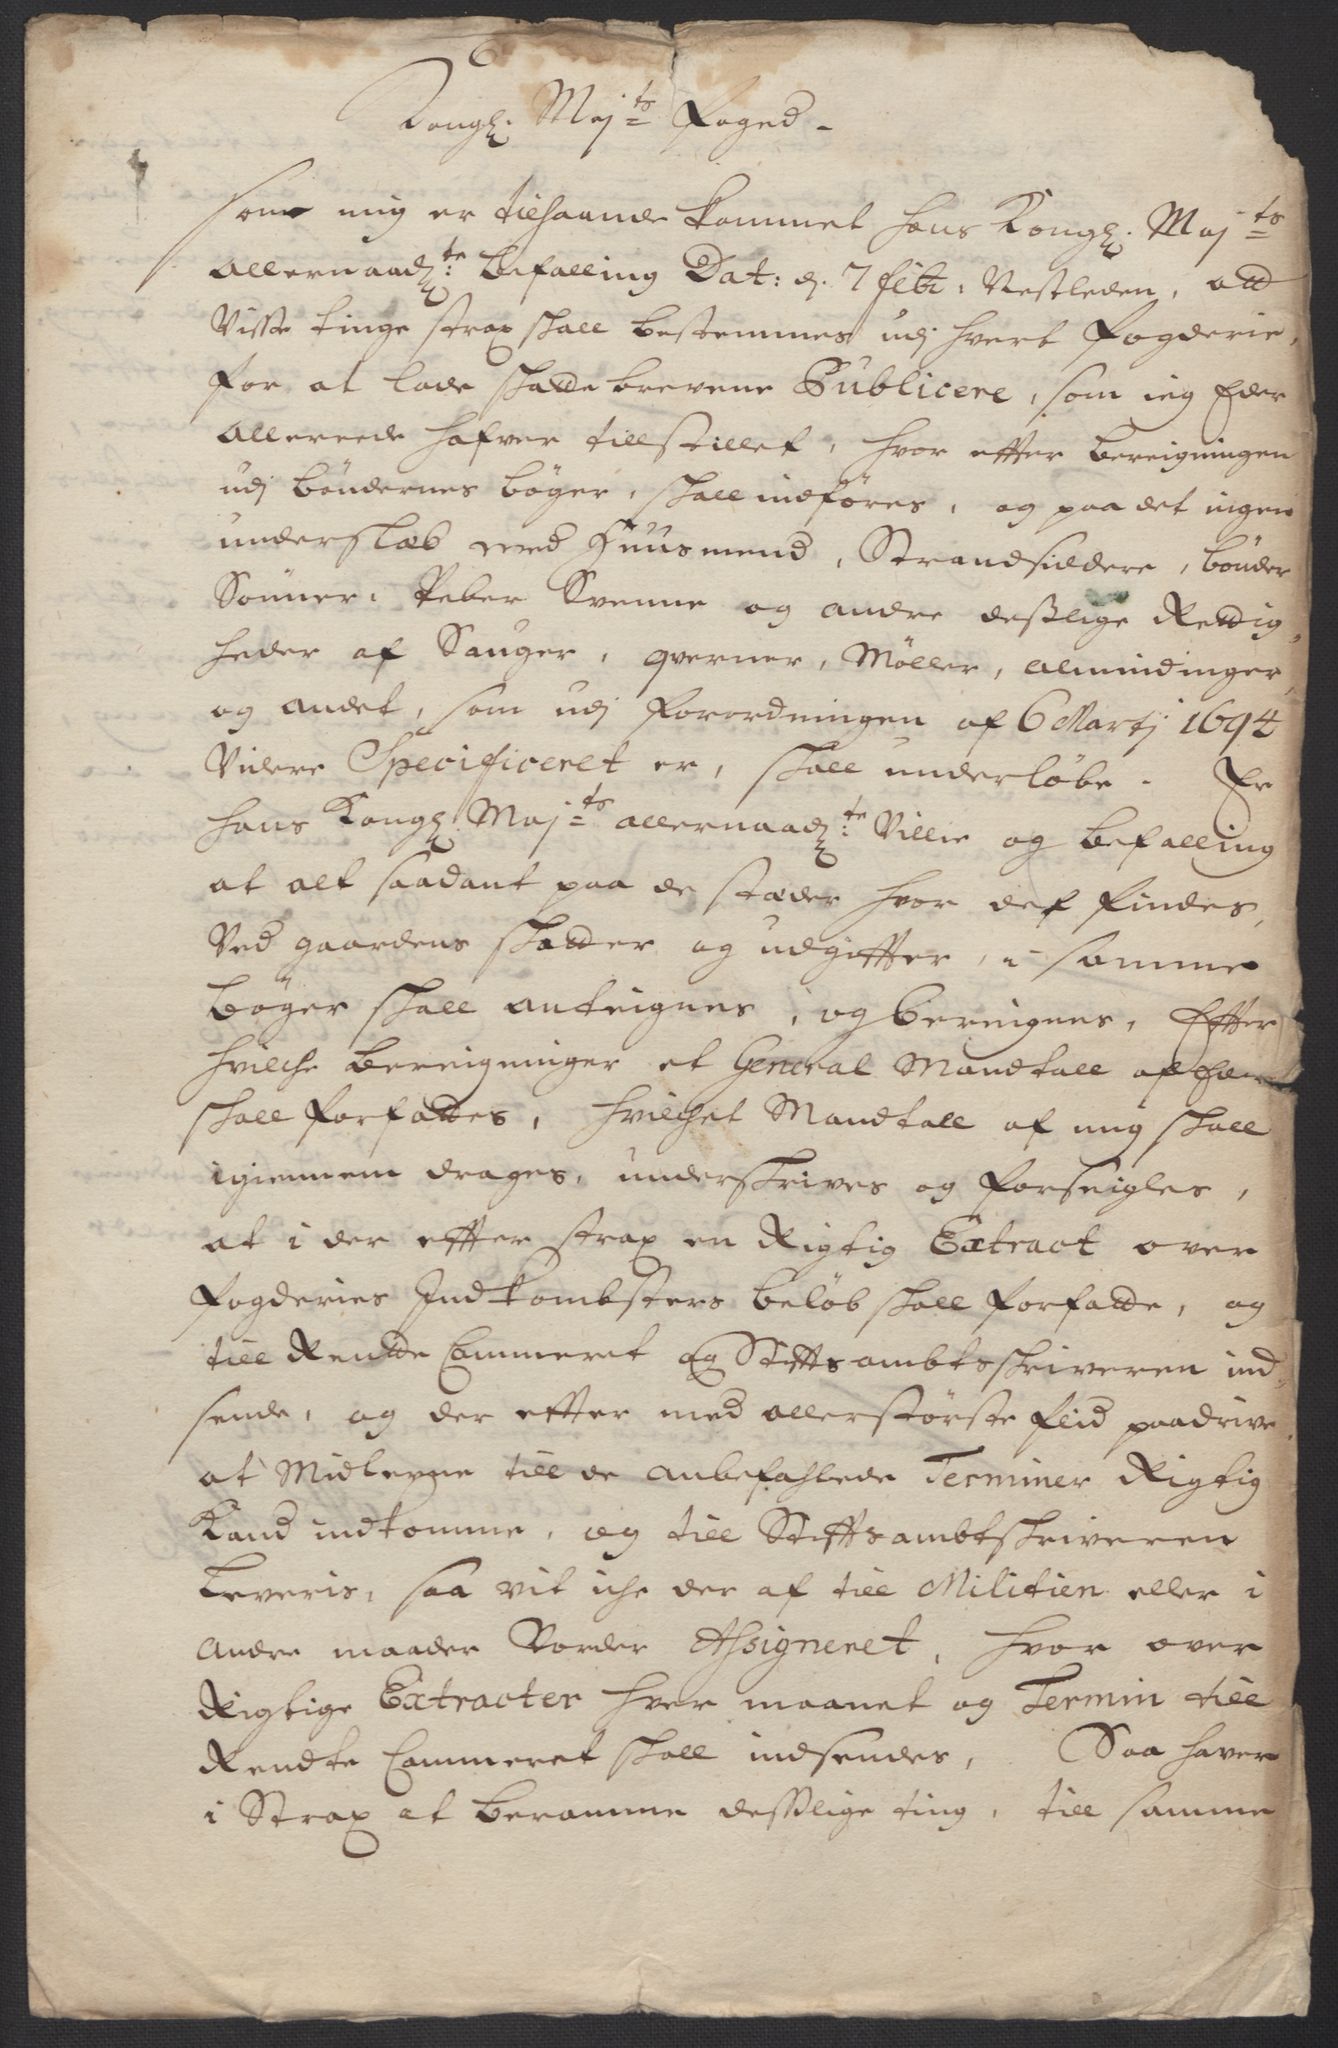 Kongl. Maj:ts Foged.
Som mig er tilhaande kommet hans Kongl. Maj:ts
allernaadl:te befalling Dat: d. 7 febr: Nestleden, att
Visse tinge strax skall bestemmes udj hvert fogderie,
for at lade skattebrevene Publicere, som ieg Eder
allereede hafver tillstillet, hvor efter bereigningen
udj böndernes böger, skall indföres, og paa det ingen
underslæb med Huusmend, Strandsiddere, bönder
Sönner, Peber Svenne og andre deslige Rettig-
heder af Sauger, qverner, Möller, almindinger,
og andet, som udj forordningen af 6 Martj 1694
Videre Specificeret er, skall underlöbe. Er
hans Kongl. Maj:ts allernaadl:te Villie og befalling
at alt saadant paa de stæder hvor det findes,
Ved gaardens skatter og udgiffter, i samme
böger skall anteignes, og bereignes, Effter
hvilche bereigninger et General Mandtall af Eder
skall forfattes, hvilchet Mandtall af mig skall
igiennem drages, underskrives og forseigles,
at i der effter strax en Rigtig Extract over
fogderies Indkombsters belöb skall forfatte, og
till Rentte Cammeret og Stifftsambtskriveren ind-
sende, og der effter med allerstörste flid paadrive,
at Midlerne till de anbefahlede Terminer Rigtig
Kand indkomme, og till Stifftsambtskriveren
leveris, saa vit iche der af till Militien eller i
andre maader Vorder Assigneret, hvor over
Rigtige Extracter hver maanet og Termin till
Rendte Cammeret skall indsendes, Saa haver
i Strax at beramme desslige ting, till samme